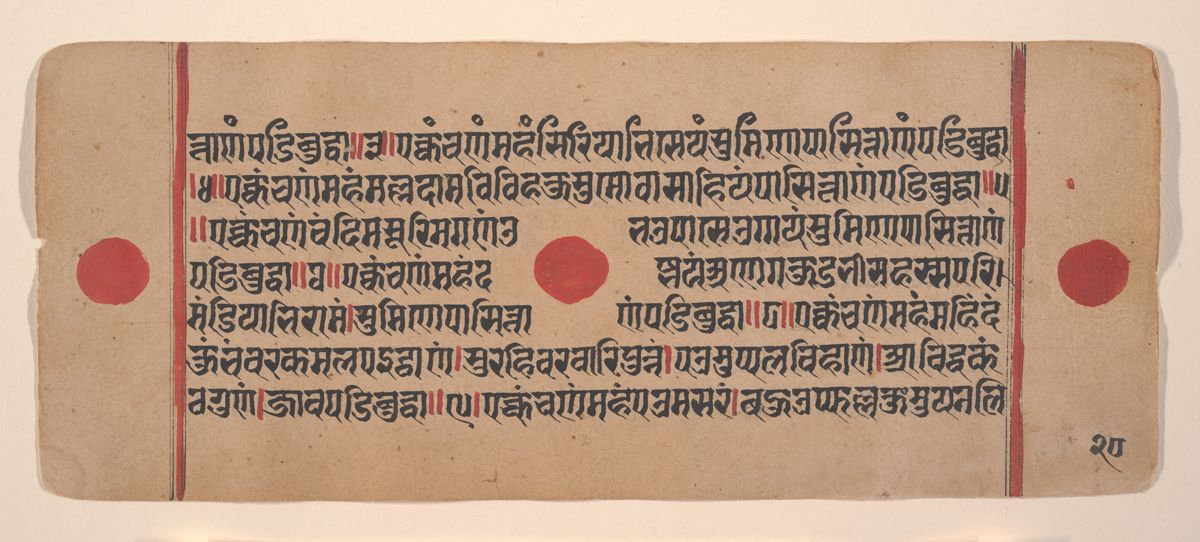 त्ताणंपडिबुद्धा॥३॥एक्कंचणंमहंसिरियाभिसेयंसुमिणेपासित्ताणंपडिबुद्धा
॥४॥एक्कंचणंमहंमल्लदामविविहकुसुमोवसोहियंपासित्ताणंपडिबुद्धा॥५
॥एक्कंचणंचंदिमसूरिमगणंउ भउपासेउग्गयंसुमिणेपासित्ताणं
पडिबुद्धा॥ एक्कंचणंमहंद अणेगकुडभीसहस्सपरि
मंडियाभिरामं।सुमिणेपासित्ता णंपडिबुद्धा॥ एक्कंचणंमहंमहिंदं
कुंभंवरकमलपइट्ठाणं।सुरहिवरवारिपुन्नं।पउमुप्पलपिहाणं।आविद्धकं
ठेगुणं।जावपडिबुद्धा॥९।एक्कंचणंमहंपउमसरं।बहुउप्फुल्लकुमुयनलि
२०